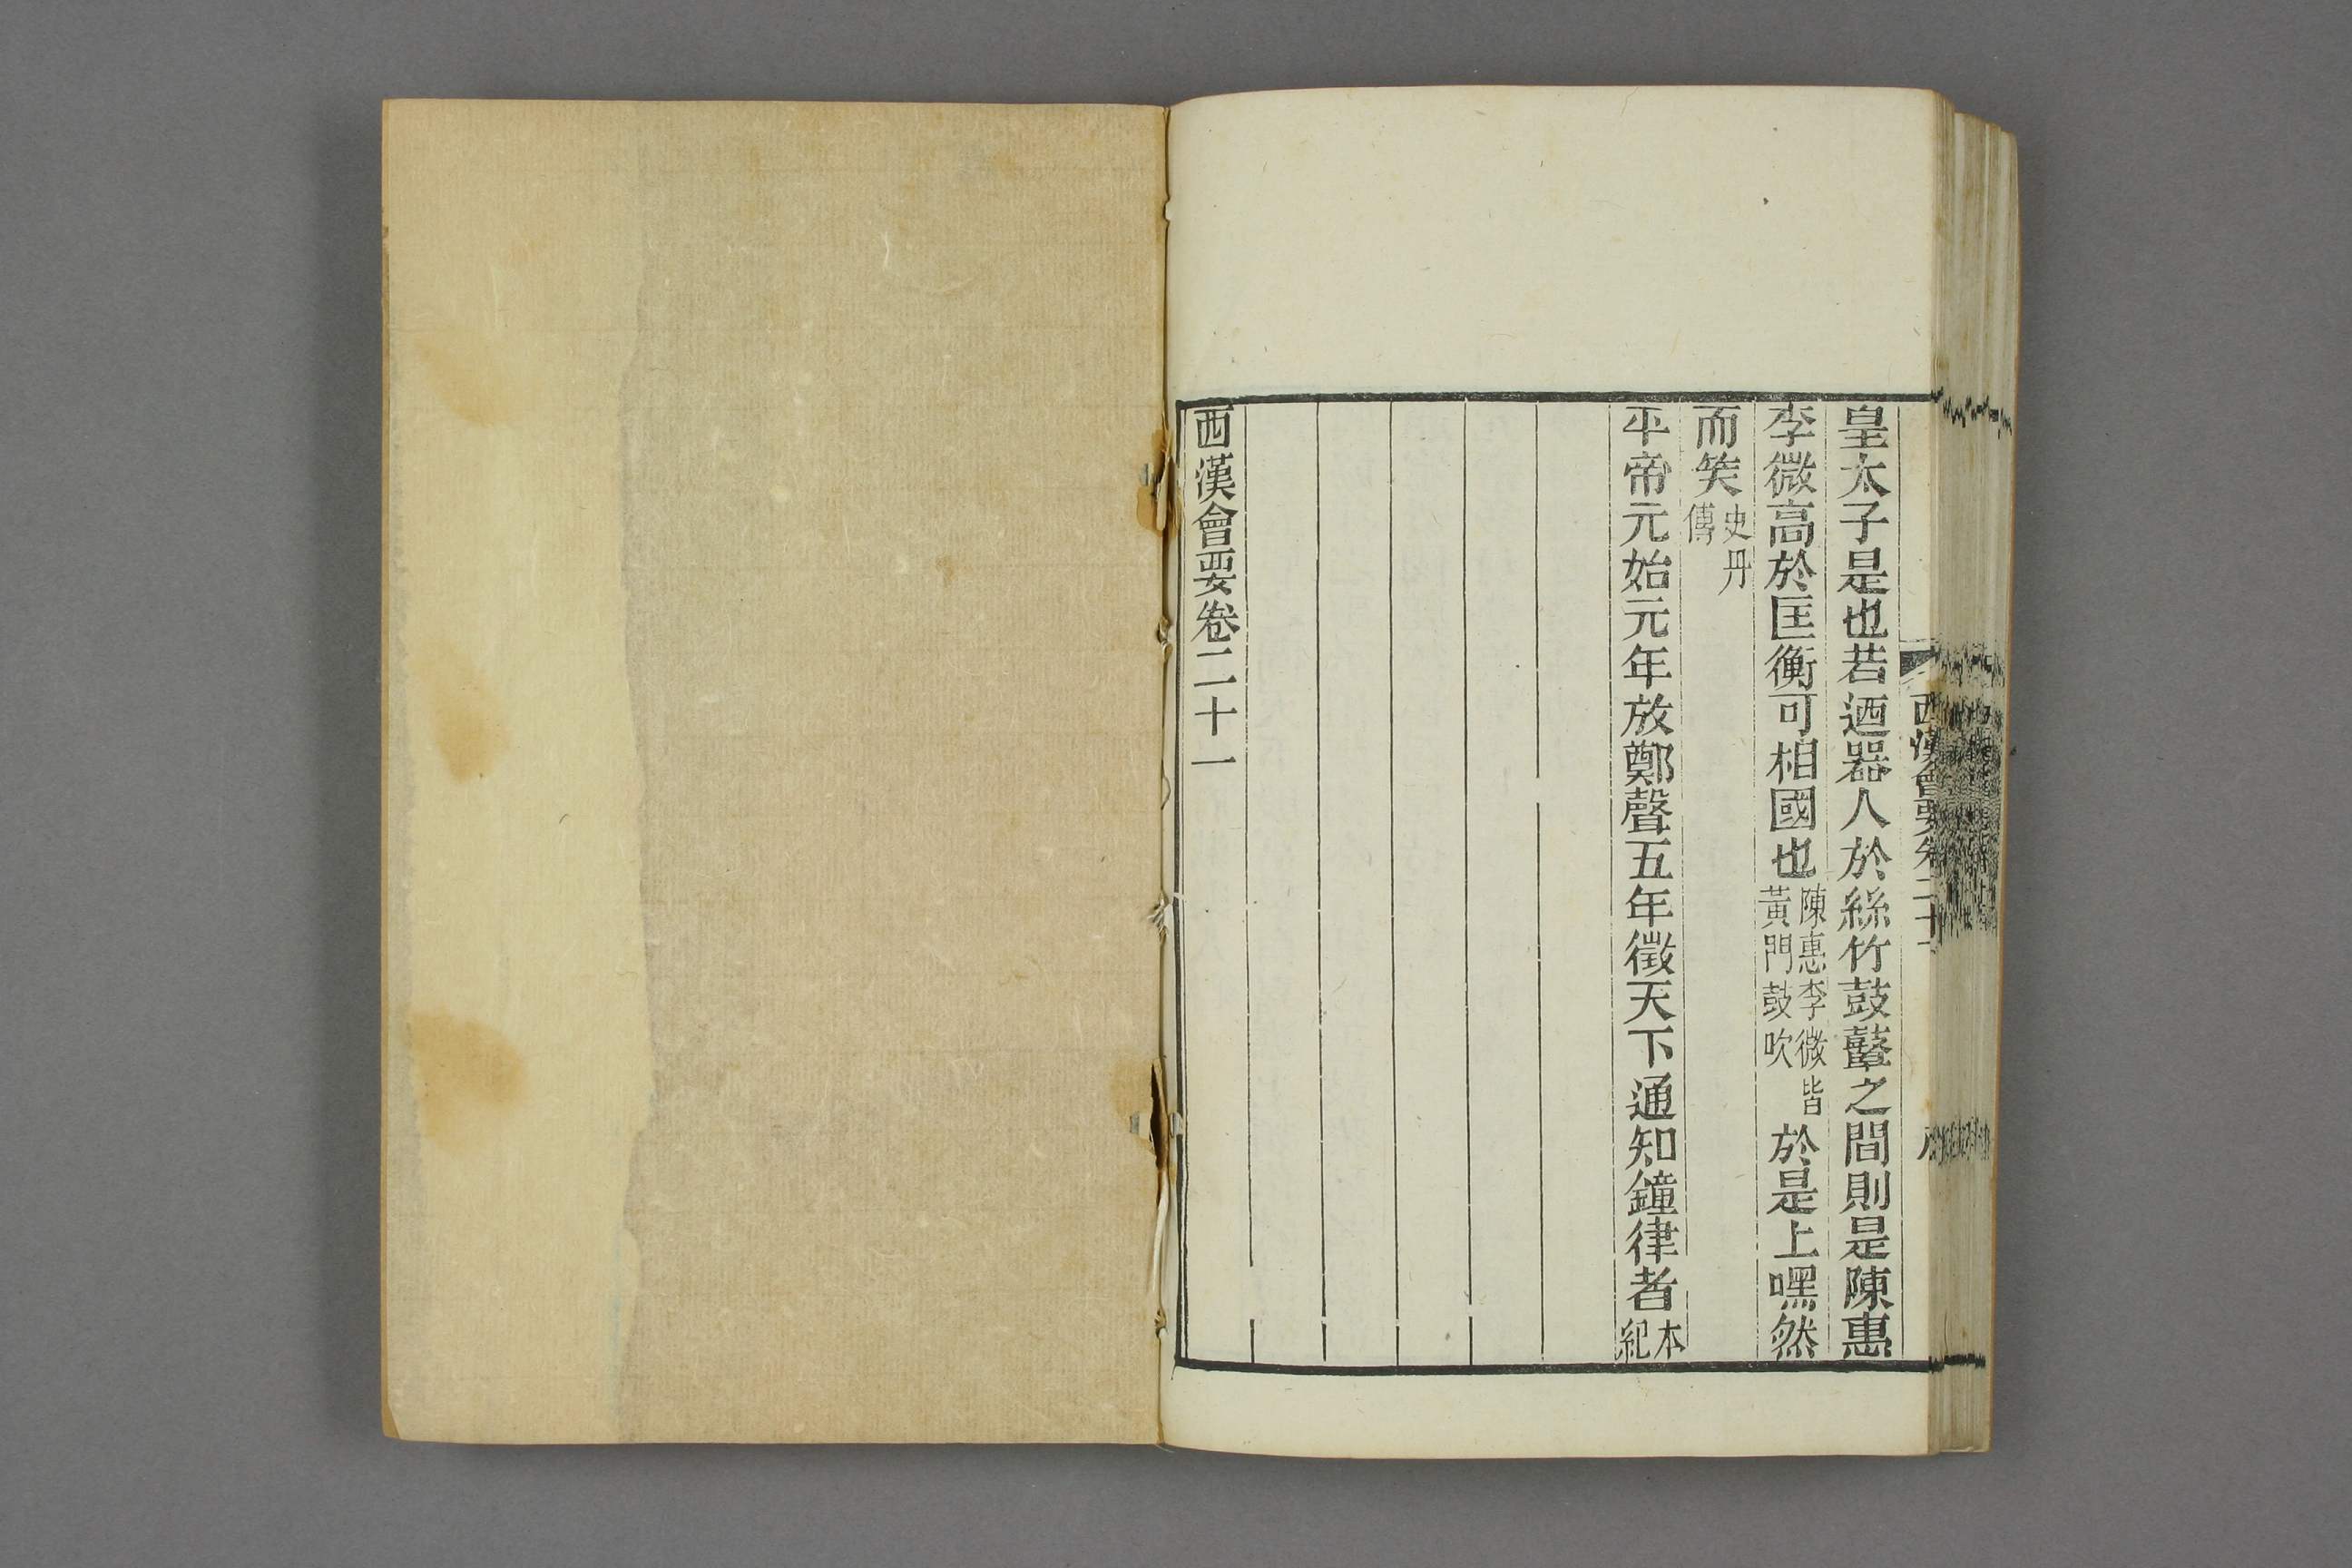 皇太子是也若迺器人於絲竹鼓鼙之間則是陳惠
李微高於匡衡可相國也陳惠李微皆黃門鼓吹於是上嘿然
而笑史丹傳
平帝元始元年放鄭聲五年徵天下通知鐘律者本紀
西漢會要卷二十一
西漢會要卷二十一